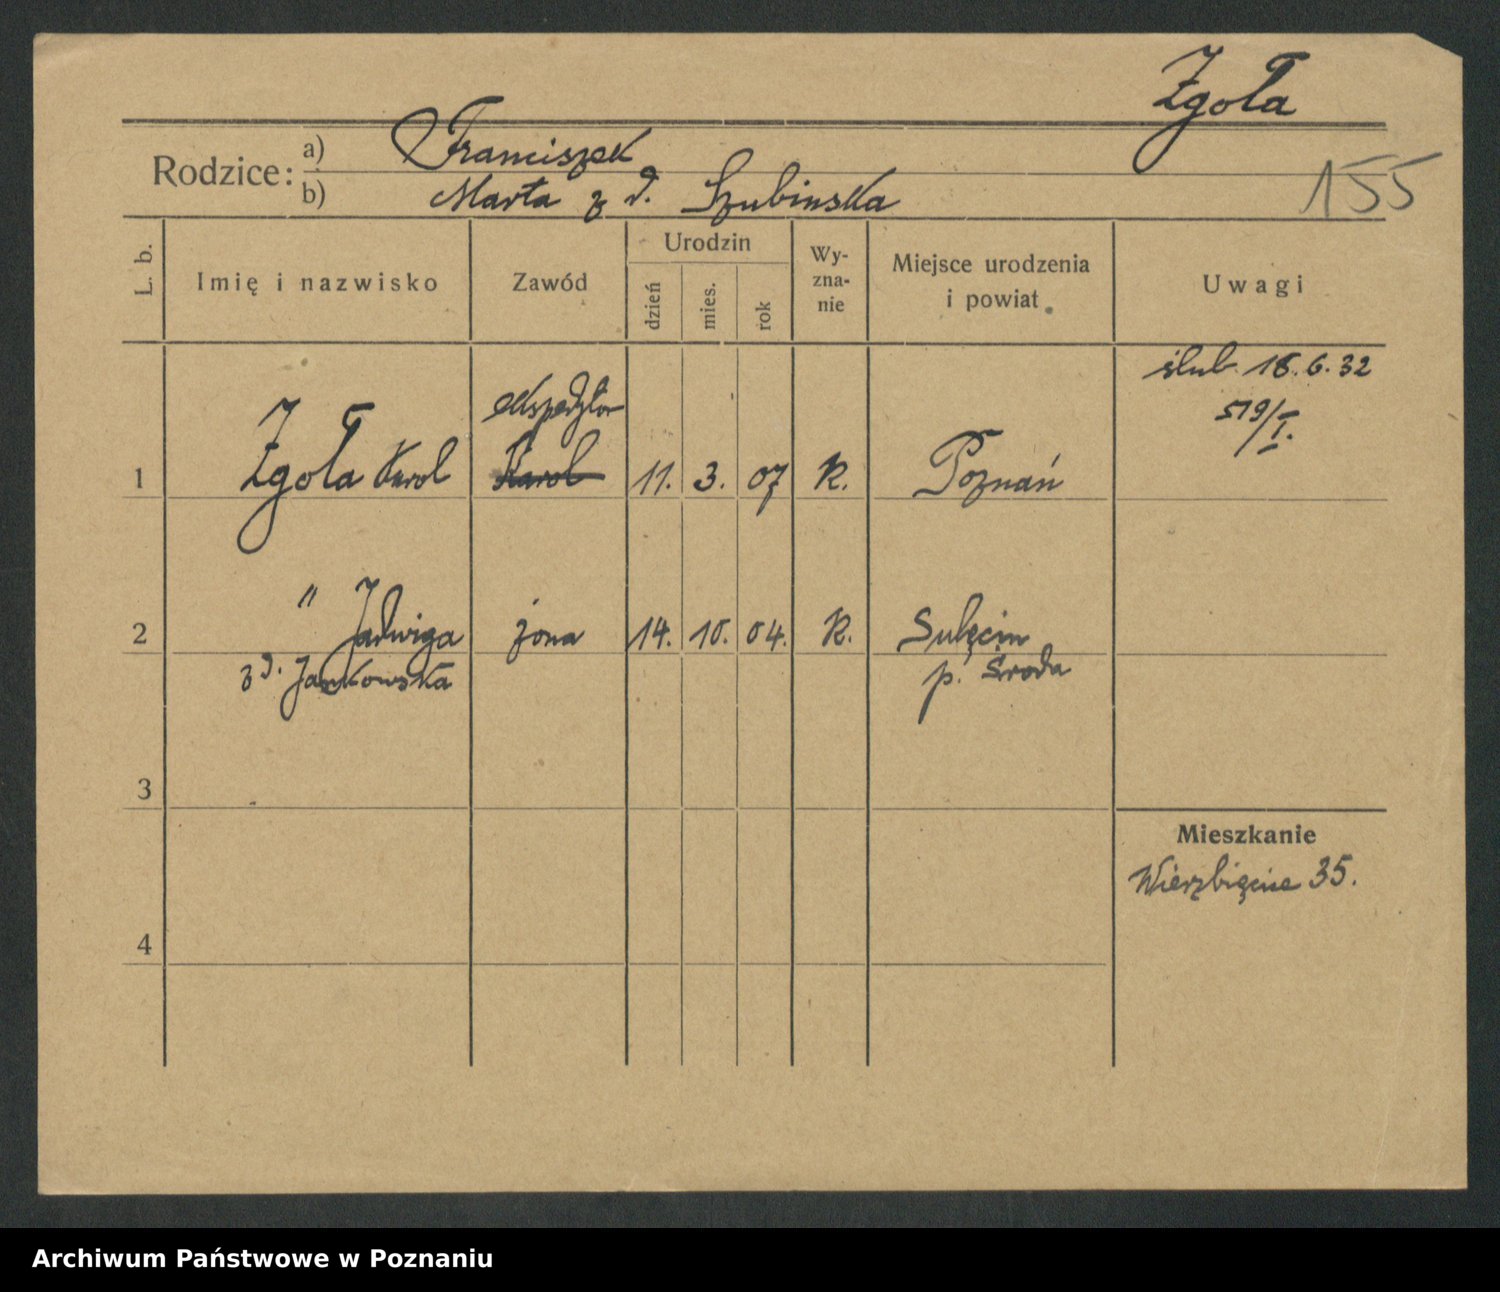 Zgoła
155
Rodzice: a) Franciszek
b) Marta z d. Szubinska
L. b.
Imię i nazwisko
Zawód
Urodzin
dzień
mies.
rok
Wy-
zna-
nie
Miejsce urodzenia
i powiat
Uwagi
ślub 18. 6. 32
519/I.
ekspedytor
1 Zgoła Karol Karol 11. 3. 07 R. Poznań
2 " Jadwiga żona 14. 10. 04. R. Sulęcin
z d. Jankowska p. Środa
3
Mieszkanie
Wierzbięcice 35.
4
Archiwum Państwowe w Poznaniu